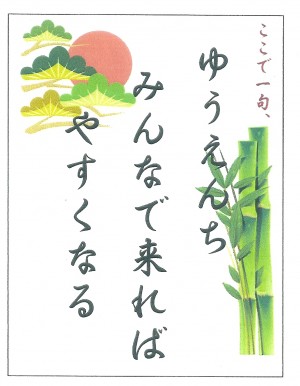 ここで一句、
ゆうえんち
みんなで来れば
やすくなる